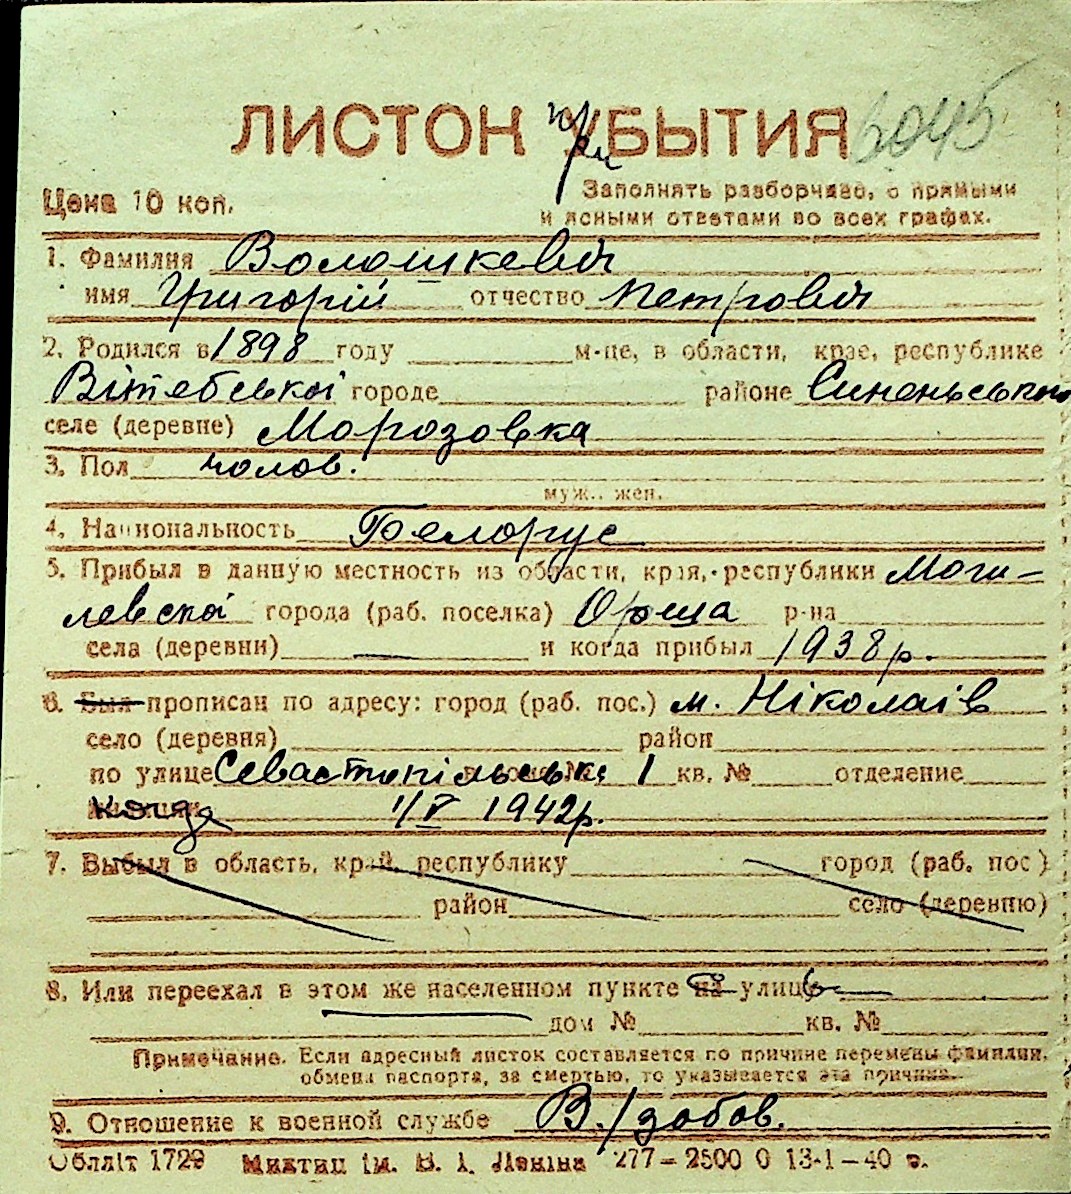 ЛИСТОН прибЫТИЯ 6045
Цена 10 коп.
Заполнять разборчиво, с прямыми
и ясными ответами во всех графах.
1. Фамилия Волошкевич
имя Григорій отчество Петрович
2. Родился в 1898 году м-це, в области, крае, республике
Вітебської городе районе Синеньського
селе (деревне) Морозовка
3. Пол чолов.
муж., жен.
4. Национальность Белорус
5. Прибыл в данную местность из области, края, республики Моги-
левскої города (раб. поселка) Орша р-на
села (деревни) — и когда прибыл 1938 р.
6. Был прописан по адресу: город (раб. пос.) м. Ніколаів
село (деревня) район
по улице Севастопільська 1 кв. № отделение
когда 1/V 1942 р.
7. Выбыл в область, край, республику город (раб. пос)
район село (деревню)
8. Или переехал в этом же населенном пункте на улицу
дом № кв. №
Примечание. Если адресный листок составляется по причине перемены фамилии,
обмена паспорта, за смертью, то указывается эта причина.
9. Отношение к военной службе В./зобов.
Обллiт 1729 Миктип ім. В. І. Леніна 277—2500 0 13-1—40 г.